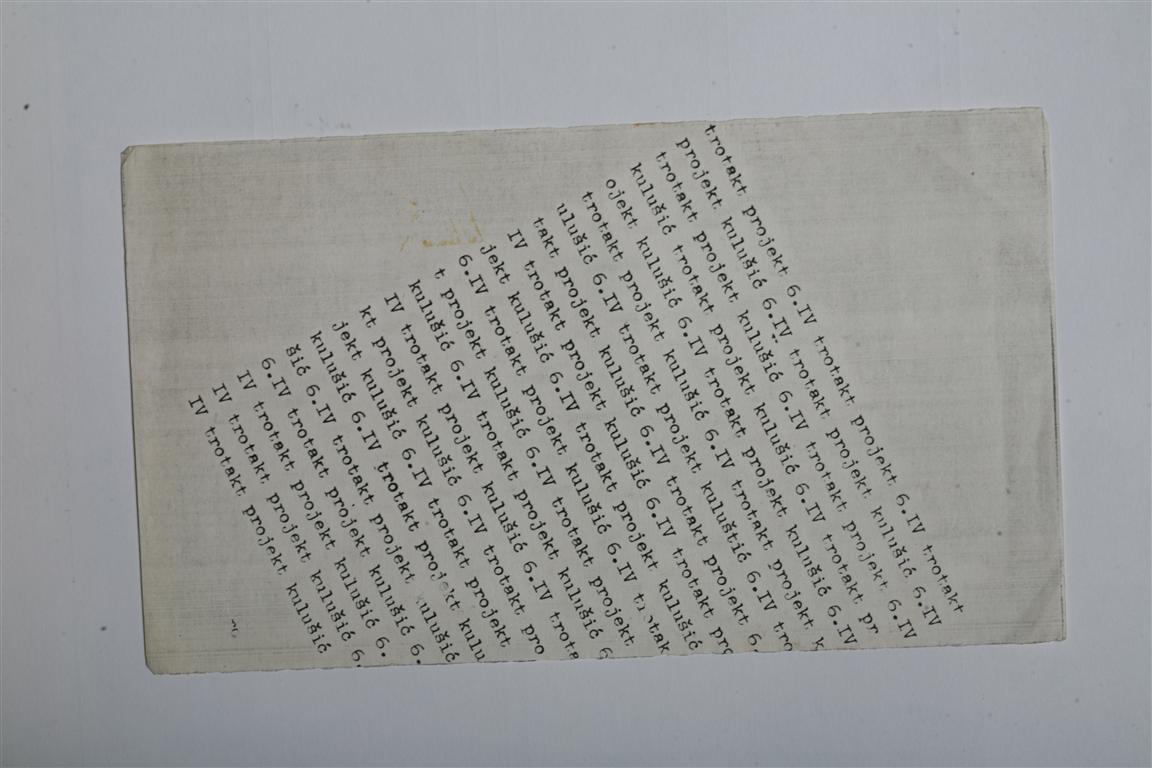 trotakt projekt 6.IV trotakt projekt 6.IV trotakt
projekt kulušić 6.IV trotakt projekt kulušić 6.IV
trotakt projekt kulušić 6.IV trotakt projekt 6.IV
kulušić trotakt projekt kulušić 6.IV trotakt pr
ojekt kulušić 6.IV trotakt projekt kulušić 6.IV
trotakt projekt kulušić 6.IV trotakt projekt k
ulušić 6.IV trotakt projekt kuluštić 6.IV tro
takt projekt kulušić 6.IV trotakt projekt 6.
IV trotakt projekt kulušić 6.IV trotakt pro
jekt kulušić 6.IV trotakt projekt kulušić
6.IV trotakt projekt kulušić 6.IV trotak
t projekt kulušić 6.IV trotakt projekt
kulušić 6.IV trotakt projekt kulušić 6
IV trotakt projekt kulušić 6.IV trota
kt projekt kulušić 6.IV trotakt pro
jekt kulušić 6.IV trotakt projekt
kulušić 6.IV trotakt projekt kulu
šić 6.IV trotakt projekt kulušić
6.IV trotakt projekt kulušić 6.
IV trotakt projekt kulušić 6.
IV trotakt projekt kulušić 6.
IV trotakt projekt kulušić